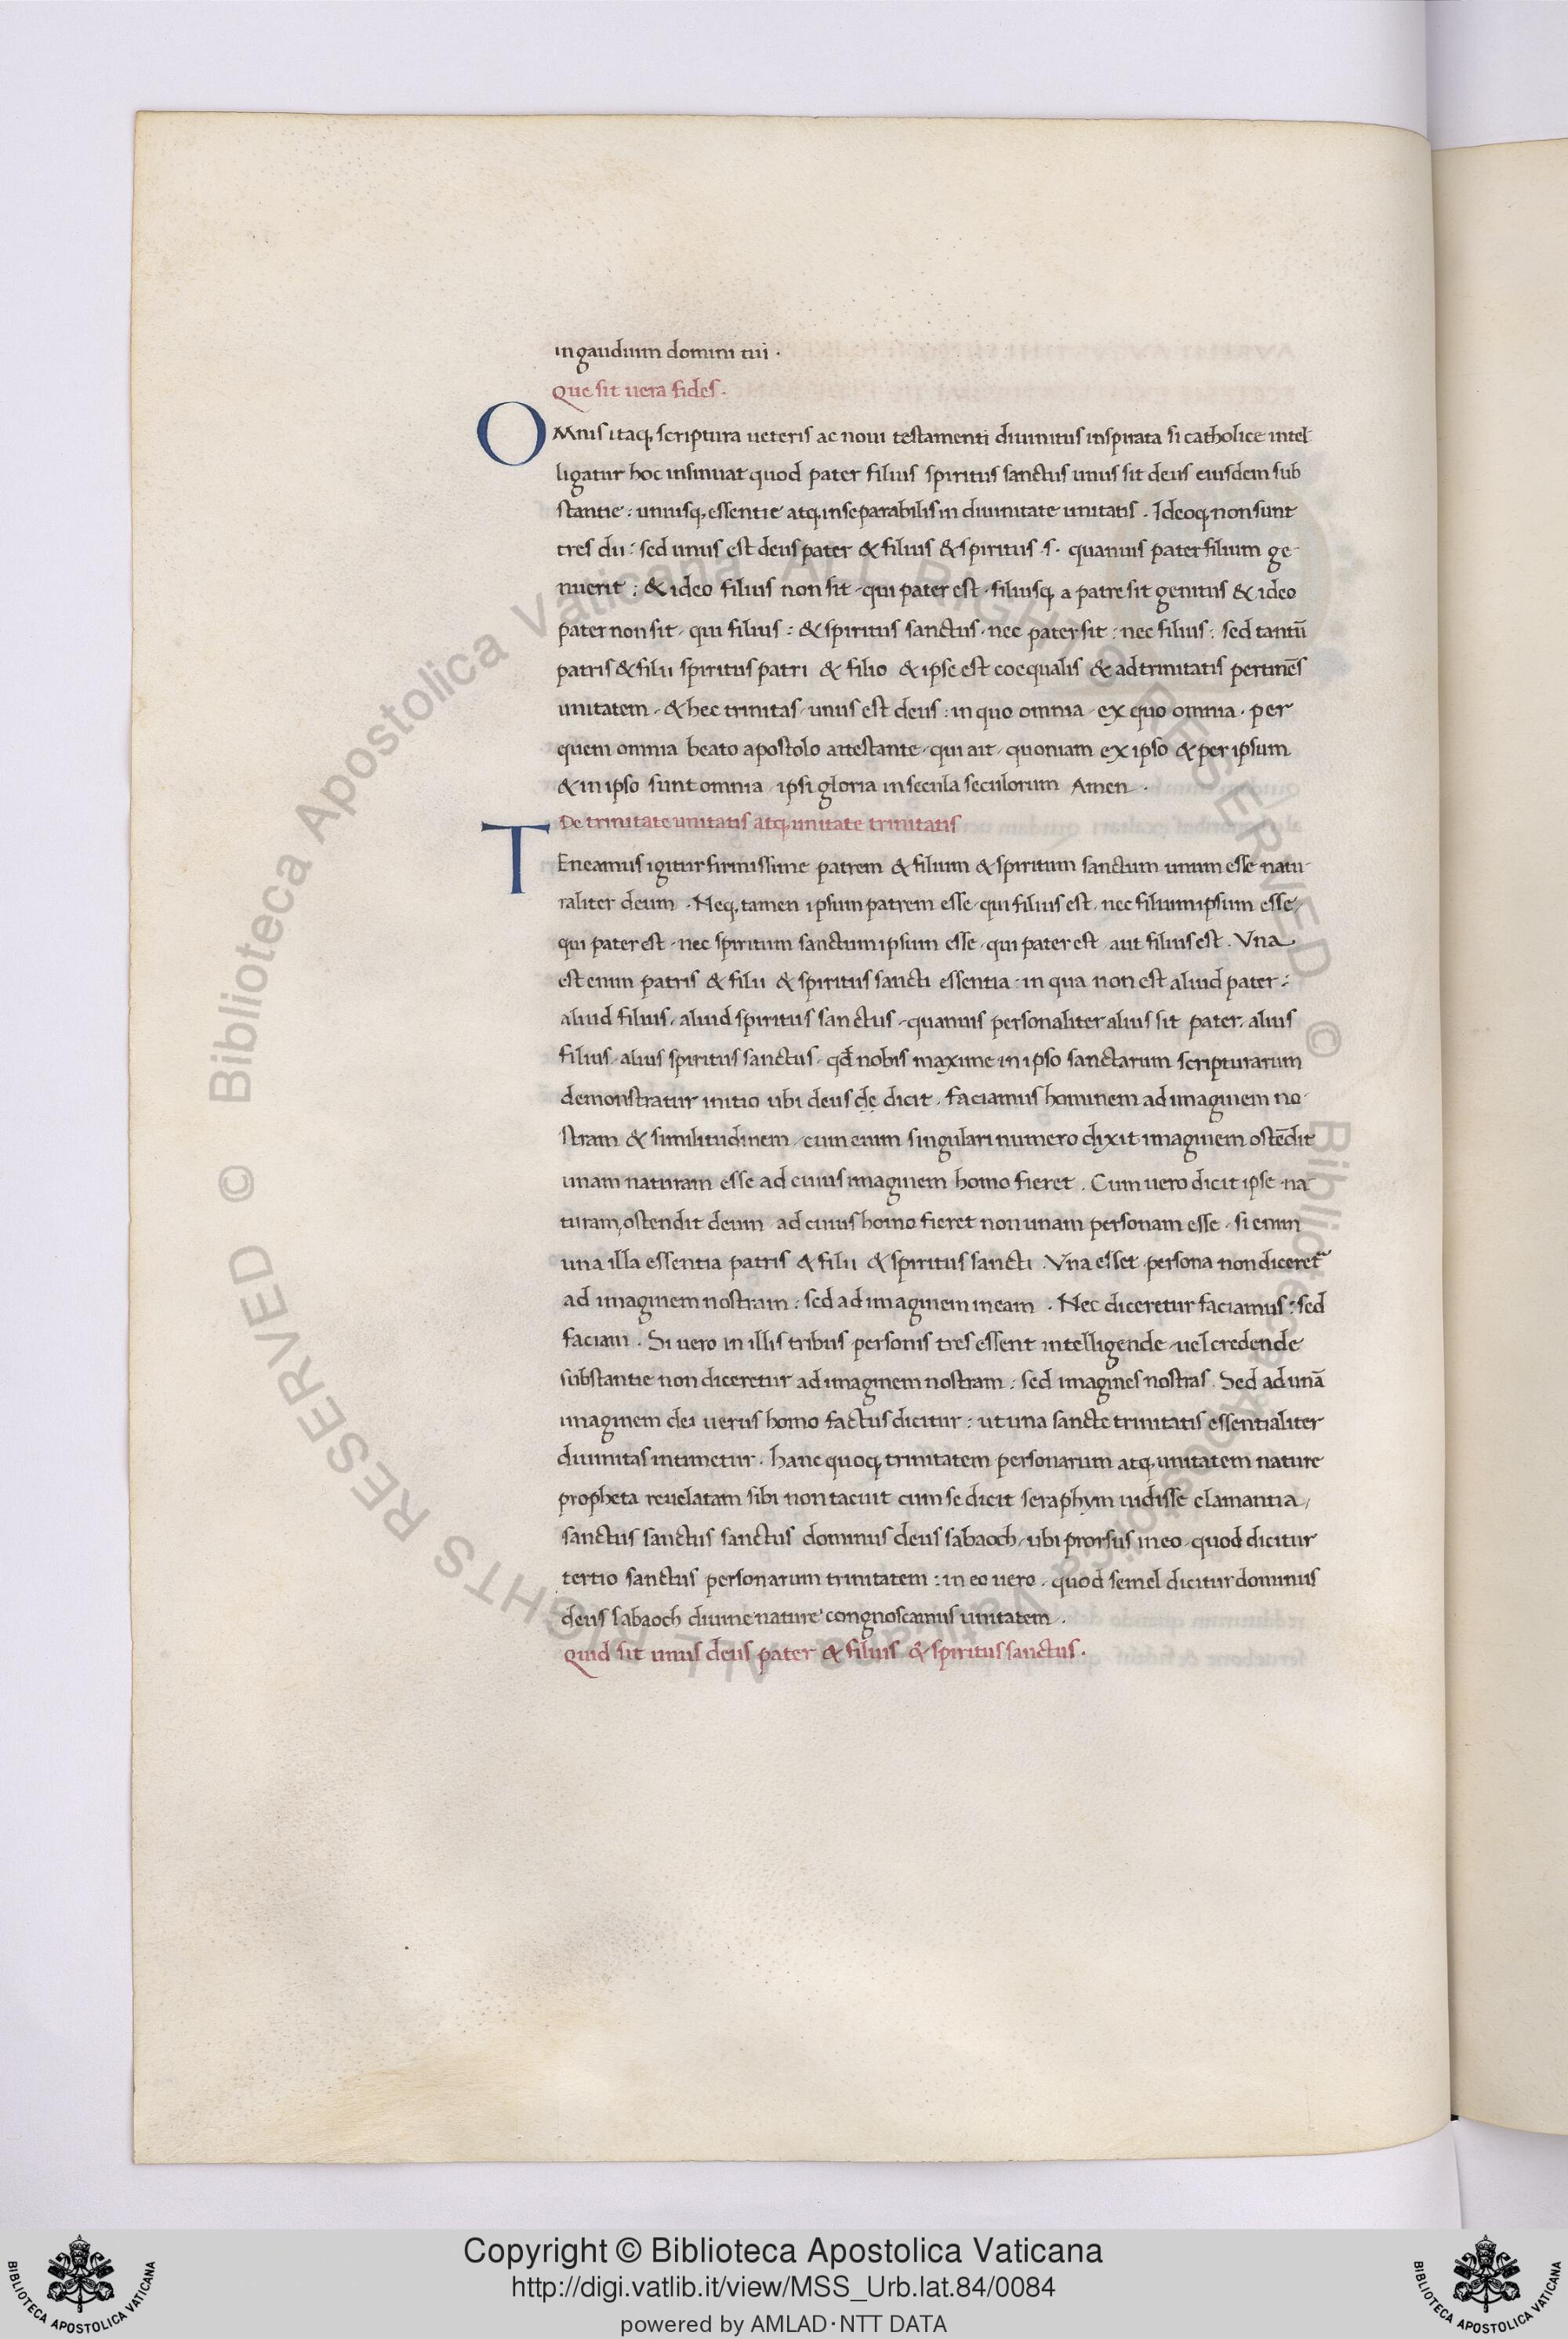 in gaudium domini tui ·
Que sit uera fides ·
OMnis itaq; scriptura ueteris ac noui testamenti diuinitus inspirata si catholice intel-
ligatur hoc insinuat quod pater filius spiritus sanctus unus sit deus eiusdem sub
stantie : uniusq; essentie atq; inseparabilis in diuinitate unitatis . Ideoq; non sunt
tres dii : sed unus est deus pater & filius & spiritus ·s· quamuis pater filium ge-
nuerit ; & ideo filius non sit · qui pater est · filiusq; a patre sit genitus & ideo
pater non sit · qui filius : & spiritus sanctus · nec pater sit : nec filius : sed tantũ
patris & filii spiritus patri & filio & ipse est coequalis & ad trinitatis pertinẽs
unitatem · & hec trinitas · unus est deus : in quo omnia · ex quo omnia · per
quem omnia beato apostolo attestante · qui ait · quoniam ex ipso & per ipsum
& in ipso sunt omnia ipsi gloria in secula seculorum Amen ·
De trinitate unitatis atq; unitate trinitatis
TEneamus igitur firmissime patrem & filium & spiritum sanctum unum esse natu-
raliter deum · Neq; tamen ipsum patrem esse · qui filius est · nec filium ipsum esse /
qui pater est · nec spiritum sanctum ipsum esse · qui pater est · aut filius est . Vna
est enim patris & filii & spiritus sancti essentia · in qua non est aliud pater :
aliud filius · aliud spiritus sanctus · quamuis personaliter alius sit pater · alius
filius · alius spiritus sanctus · qđ nobis maxime in ipso sanctarum scripturarum
demonstratur initio ubi deus de dicit · faciamus hominem ad imaginem no-
stram & similitudinem · cum enim singulari numero dixit imaginem ostẽdit
unam naturam esse ad cuius imaginem homo fieret . Cum uero dicit ipse na
turam, ostendit deum ad cuius homo fieret non unam personam esse · si enim
una illa essentia patris & filii & spiritus sancti . Vna esset persona non diceret᷑
ad imaginem nostram : sed ad imaginem meam · Nec diceretur faciamus : sed
faciam . Si uero in illis tribus personis tres essent intelligende · uel credende
substantie non diceretur ad imaginem nostram : sed imagines nostras . Sed ad unã
imaginem dei uerus homo factus dicitur : ut una sancte trinitatis essentialiter
diuinitas intimetur . hanc quoq; trinitatem personarum atq; unitatem nature
propheta reuelatam sibi non tacuit cum se dicit seraphym uidisse clamantia /
sanctus sanctus sanctus dominus deus sabaoch · ubi prorsus in eo · quod dicitur
tertio sanctus personarum trinitatem : in eo uero · quod semel dicitur dominus
deus sabaoch diuine nature congnoscamus unitatem .
Quid sit unus deus pater & filius & spiritus sanctus ·
© Biblioteca Apostolica Vaticana ALL RIGHTS RESERVED © Biblioteca Apostolica Vaticana ALL RIGHTS RESERVED
Copyright © Biblioteca Apostolica Vaticana
http://digi.vatlib.it/view/MSS_Urb.lat.84/0084
powered by AMLAD·NTT DATA
BIBLIOTECA APOSTOLICA VATICANA
BIBLIOTECA APOSTOLICA VATICANA